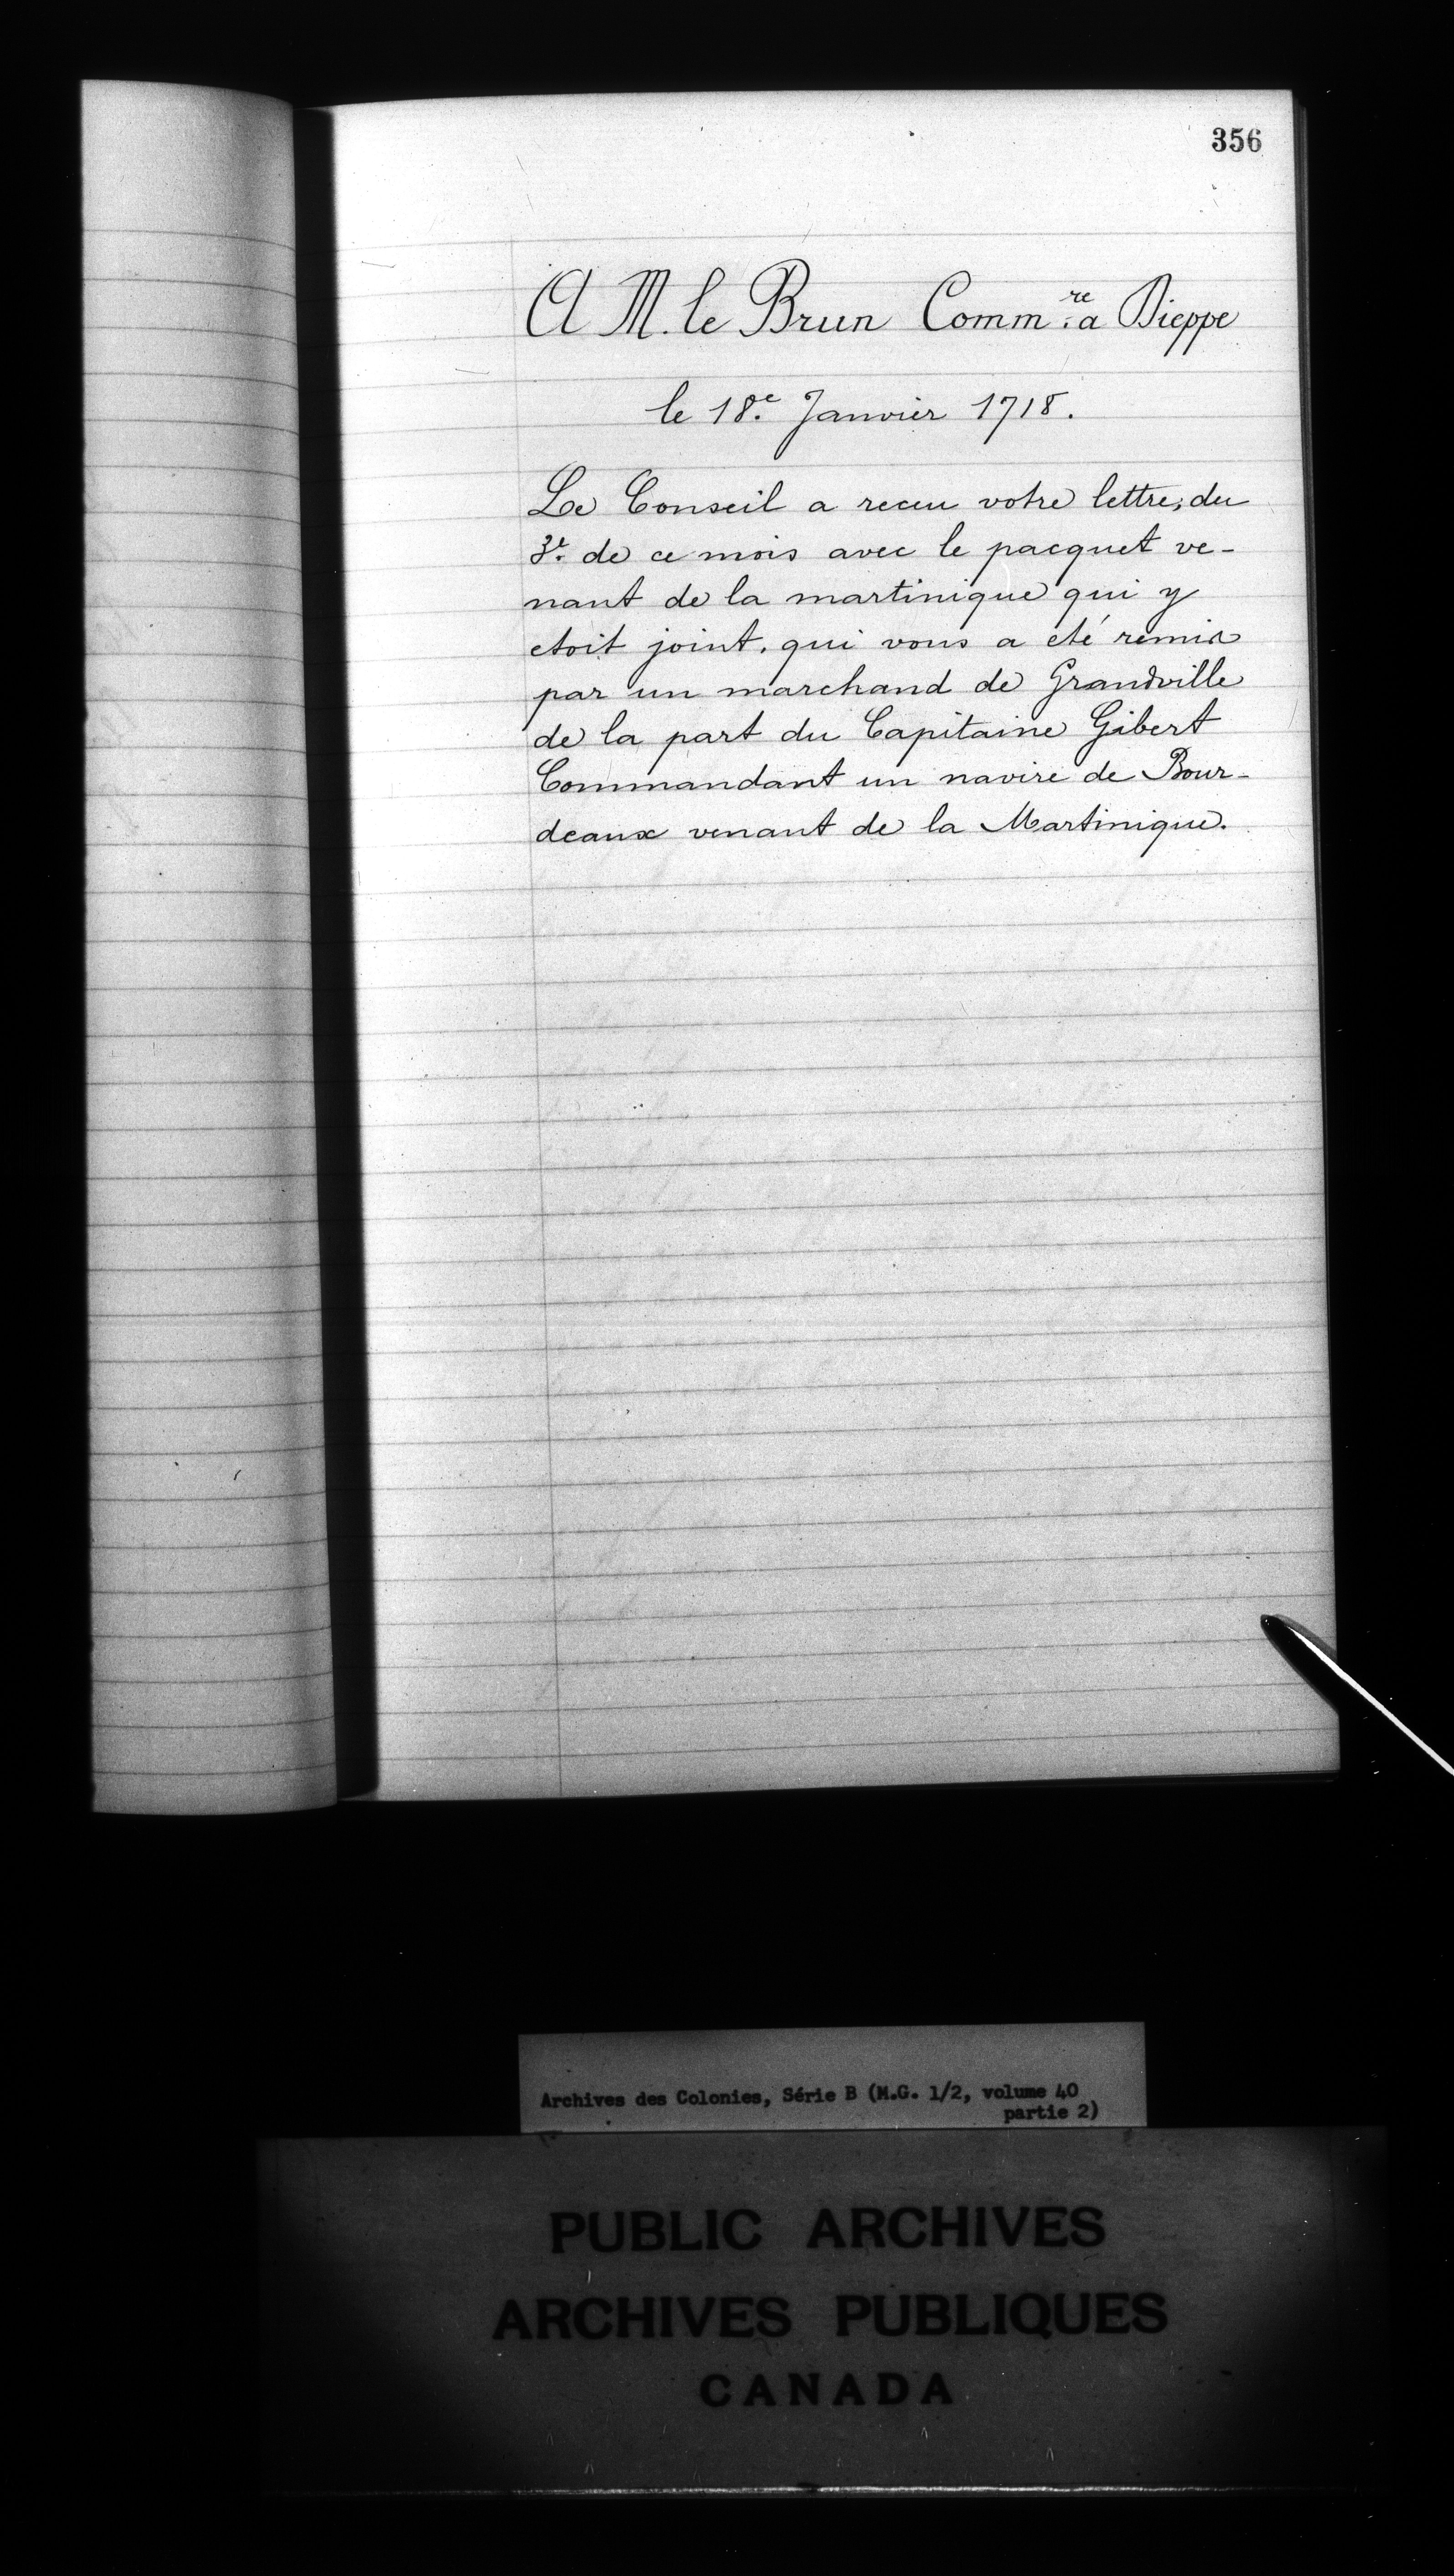 356
A M. le Brun Comm.re a Dieppe
le 18.e Janvier 1718.
Le Conseil a receu votre lettre, du
3.e de ce mois avec le pacquet ve-
nant de la martinique qui y
etoit joint, qui vous a eté remis
par un marchand de Grandville
de la part du Capitaine Gibert
Commandant un navire de Bour-
deaux venant de la Martinique.
Archives des Colonies, Série B (M.G. 1/2, volume 40
partie 2)
PUBLIC ARCHIVES
ARCHIVES PUBLIQUES
CANADA